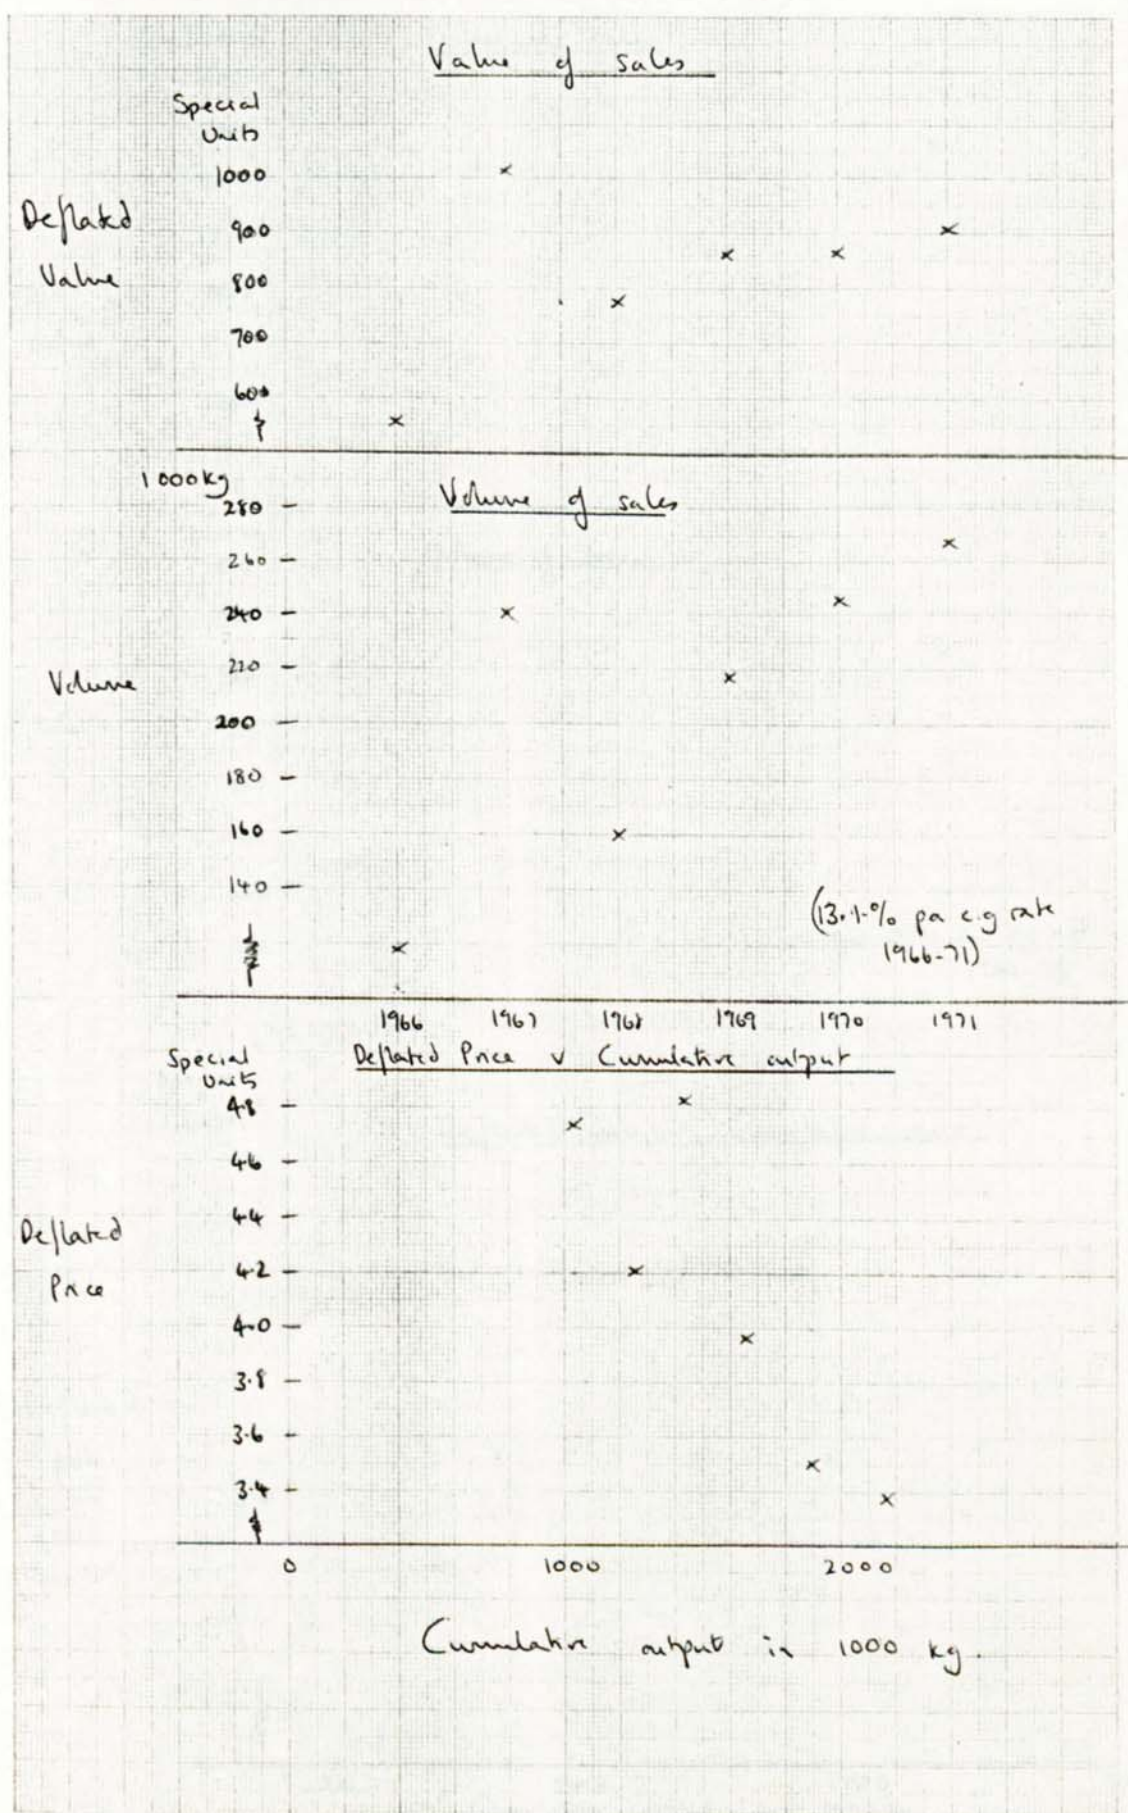 Value of sales
Special
Units
1000
Deflated
900
Value
800
700
600
1000kg
Volume of sales
280
260
240
220
Volume
200
180
160
140
(13.1% pa c.g rate
1966-71)
1966 1967 1968 1969 1970 1971
Special
Units
Deflated Price v Cumulative output
4.8
4.6
4.4
Deflated
4.2
Price
4.0
3.8
3.6
3.4
0 1000 2000
Cumulative output in 1000 kg.